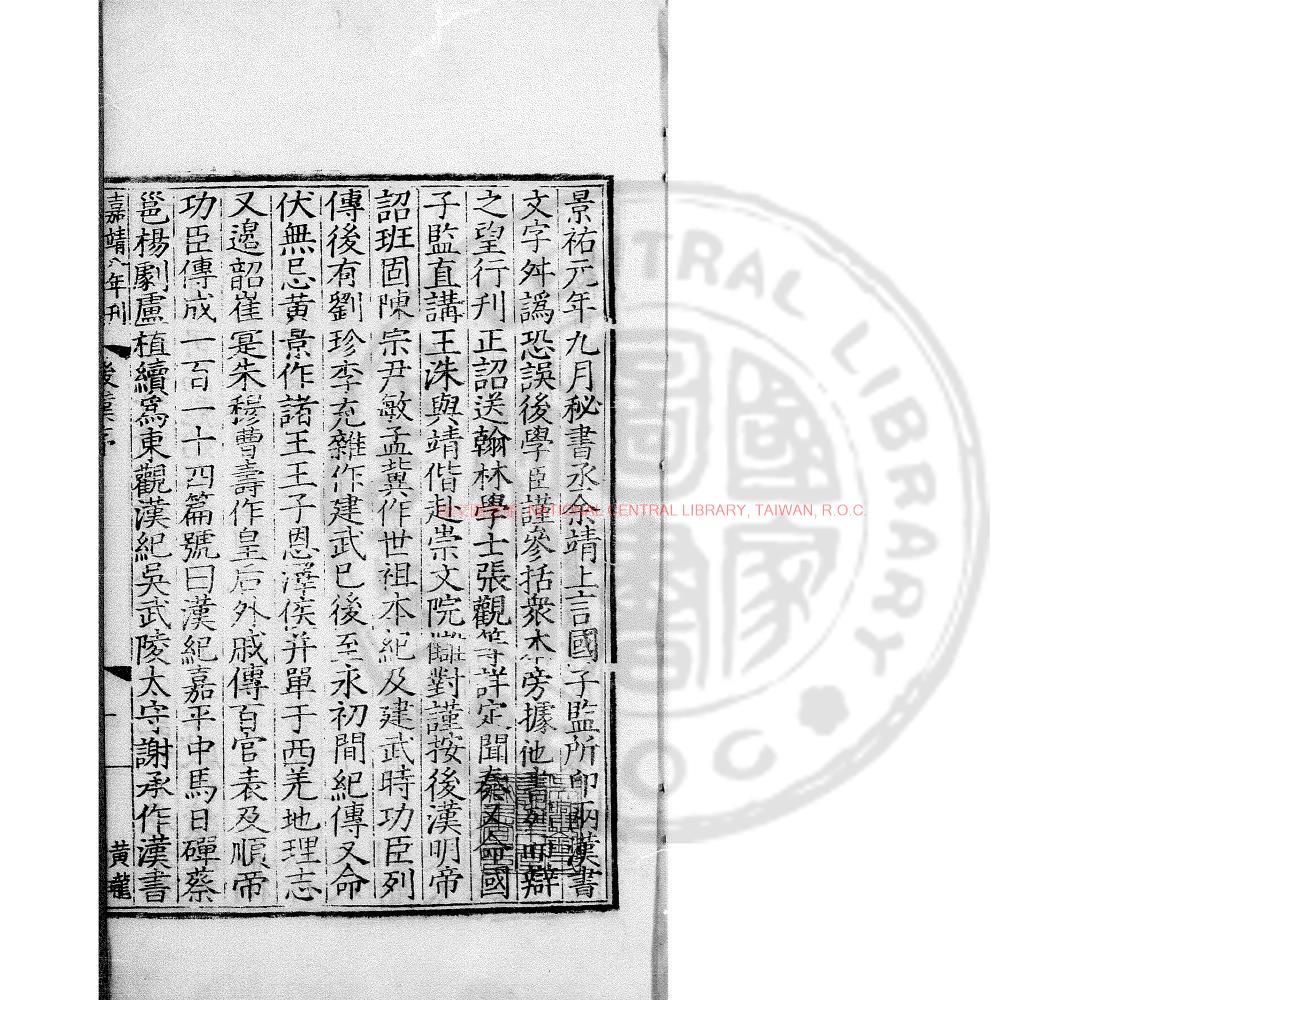 景祐元年九月秘書丞余靖上言國子監所印兩漢書
文字舛譌恐誤後學臣謹參括衆本旁據他書列而辯
之望行刊正詔送翰林學士張觀等詳定聞奏又命國
子監直講王洙與靖偕赴崇文院讎對謹按後漢明帝
詔班固陳宗尹敏孟冀作世祖本紀及建武時功臣列
傳後有劉珍李充雜作建武已後至永初間紀傳又命
伏無忌黃景作諸王王子恩澤侯并單于西羌地理志
又邊韶崔寔朱穆曹壽作皇后外戚傳百官表及順帝
功臣傳成一百一十四篇號曰漢紀嘉平中馬日磾蔡
邕楊劇盧植續爲東觀漢紀吳武陵太守謝承作漢書
嘉靖八年刊 後漢序 一 黃龍
NATIONAL CENTRAL LIBRARY, TAIWAN, R.O.C
CENTRAL LIBRARY